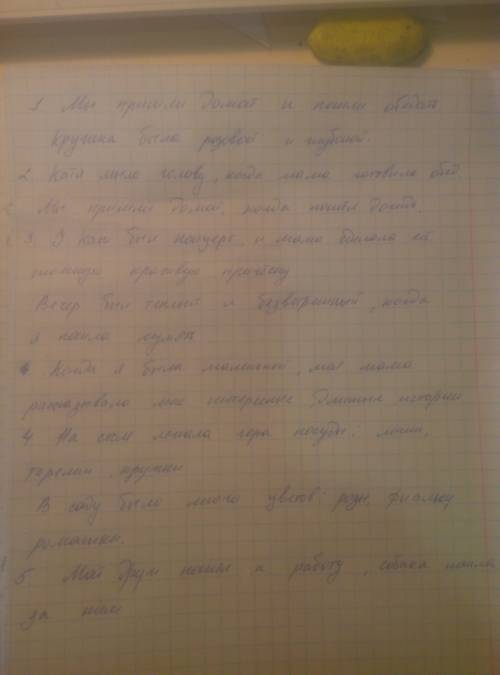 1 Мы пришли домой и пошли обедать
Кружка была розовой и глубокой.
2. Катя мыла голову, когда мама готовила обед
Мы пришли домой, когда пошёл дождь.
3. У Кати был концерт, и мама сделала ей
красивую причёску
Вечер был теплый и безветренный, когда
я пошла гулять
Когда я была маленькой, моя мама
рассказывала мне интересные, длинные истории
4 На столе лежала гора посуды: ложки,
тарелки, кружки
В саду было много цветов: розы, фиалки
ромашки.
5 Мой друг пошёл на работу, собака пошла
за ним